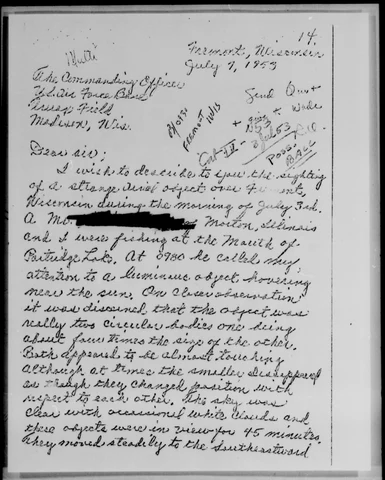 14.
Fremont, Wisconsin
July 7, 1953
The Commanding Officer
U.S. Air Force Base
Truax Field
Madison, Wis.
Fremont, WIS
Poss.
Dear sir;
I wish to describe to you the sighting
of a strange aerial object over Fremont,
Wisconsin during the morning of July 3rd.
A Mr. Morton, Illinois
and I were fishing at the Mouth of
Partridge Lake. At 0930 he called my
attention to a luminous object hovering
near the sun. On close observation
it was discerned that the object was
really two circular bodies one being
about four times the size of the other.
Both appeared to be almost touching
although at times the smaller disappeared
as though they changed position with
respect to each other. The sky was
clear with occasional white clouds and
these objects were in view for 45 minutes.
They moved steadily to the Southeastward